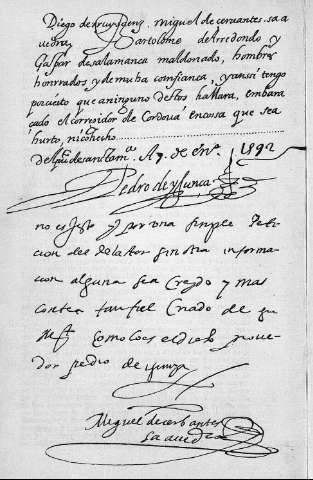 Diego de Ruy Saenz. miguel de cervantes. saa
vedra Bartolome de Arredondo y
Gaspar de salamanca maldonado, hombres
honrrados y de mucha confiança, y anssi tengo
por cierto que a ninguno destos hallara, embara
çado el corregidor de Cordova en cossa que sea
hurto, ni cohecho
de sanctam.ª A 7. de En.º 1592
Pedro de ysunca
no es justo y por una simple Peti
cion del delator sin otra informa
cion alguna sea Creydo y mas
contra tan fiel Criado de
como lo es el dicho provee
dor pedro de ysunca
Miguel de cerbantes
saavedra